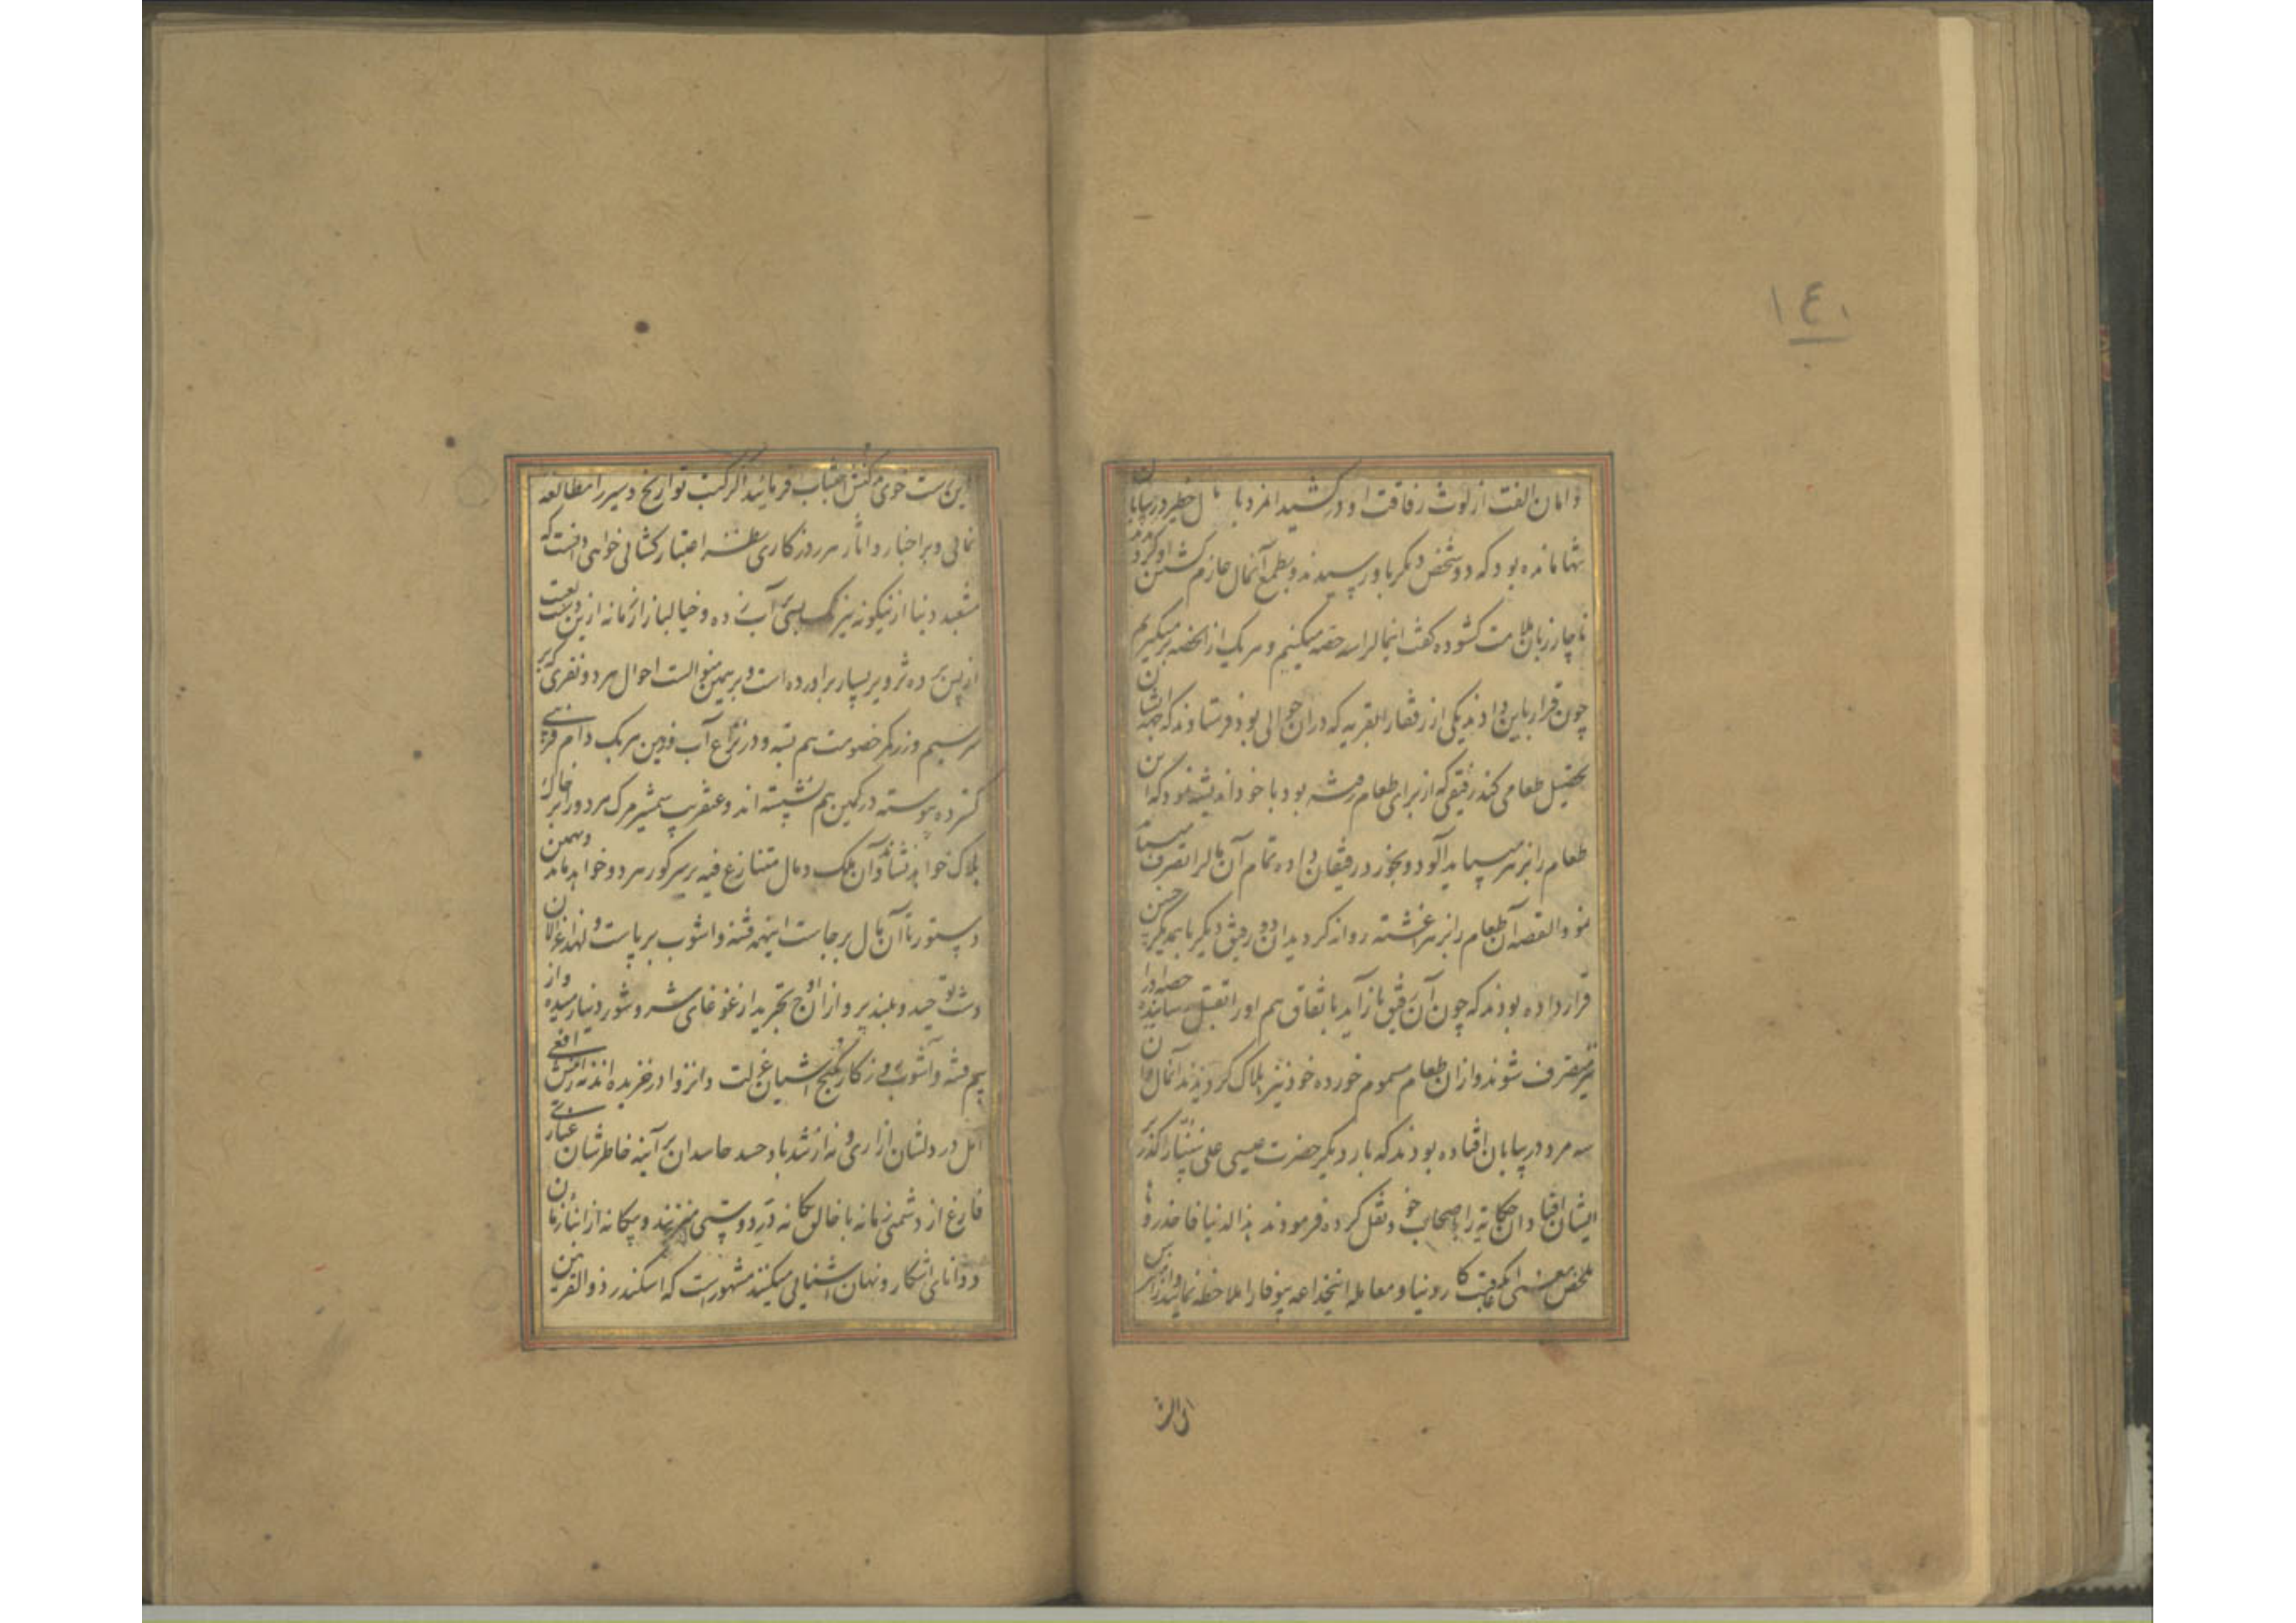 ١٤١
دامان الفت از لوث رفاقت او درکشید امرد با مال خطیر در بیابان
تنها مانده بود که دو شخص دیگر باو رسیدند و بطمع آنمال عازم کشتن او کردیدند
ناچار زبان ملامت کشوده کفت اینمالرا سه حصه میکنیم و هر یک از الحصه برمیکیریم
چون قرار باین دادند یکی از رفقا را بقریه که دران حوالی بود فرستادند که بجهة ایشان
تحصیل طعامی کند رفیقی که از برای طعام رفته بود با خود اندیشه نمود که این
طعام را بزهر میباید آلود و بخورد رفیقان داده تمام آن مالرا تصرف میباید
نمود القصه آن طعام را بزهر اغشته روانه کردید ان دو رفیق دیکر با یکدیکر چنین
قرار داده بودند که چون آن رفیق باز آید باتفاق هم او را بقتل رسانیده حصه او را
نیز متصرف شوند و از ان طعام مسموم خورده خود نیز هلاک کردیدند آنمال و ان
سه مرد در بیابان افتاده بودند که بار دیکر حضرت عیسی علی نبینا را کذر بر
ایشان افتاد و ان حکایة را باصحاب خود نقل کرده فرمودند هذا الدنیا فاحذروها
ملخص معنی انکه عاقبت کار دنیا و معامله اینخداعه بیوفا را ملاحظه نمائید و از اس
این
این ست خوی کنش اجتناب فرمائید اکر کتب تواریخ و سیر را مطالعه
نمائی و بر اخبار و اثار هر روزکاری نظر اعتبار کشائی خواهی دانست که
مشعبد دنیا ازینکونه نیرنک بسی بر آب زده و خیالباز زمانه ازین دست لعبت
از پس پرده تزویر بسیار براورده است و بر همین منوالست احوال هر دو نفری که بر
سر سیم و زر کمر خصومت هم بسته و در نزاع آب و زمین هریک دام فریبی
کسترده پیوسته در کمین هم نشسته اند و عنقریب شمشیر مرک هر دو را بر خاک
هلاک خواهد نشاند و آن ملک و مال متنازع فیه بر سر کور هر دو خواهد ماند و بهمین
دستور تا آن مال برجاست اینهمه فتنه و اشوب برپاست و لهذا غزالان
دشت توحید و بلند پروازان اوج تجرید از غوغای شر و شور دنیا رمیده و از
بیم فتنه و آشوب وی در کنار کنج اشیان عزلت و انزوا در خزیده اند نه از نیش افعی
امل در دلشان ازاری و نه از تندباد حسد حاسدان بر آینه خاطرشان غباری
فارغ از دشمنی زمانه با خالق یکانه نرد دوستی میبازند و بیکانه از ابنای زمان
و دانای اشکار و نهان اشنائی میکنند مشهورست که اسکندر ذوالقرنین